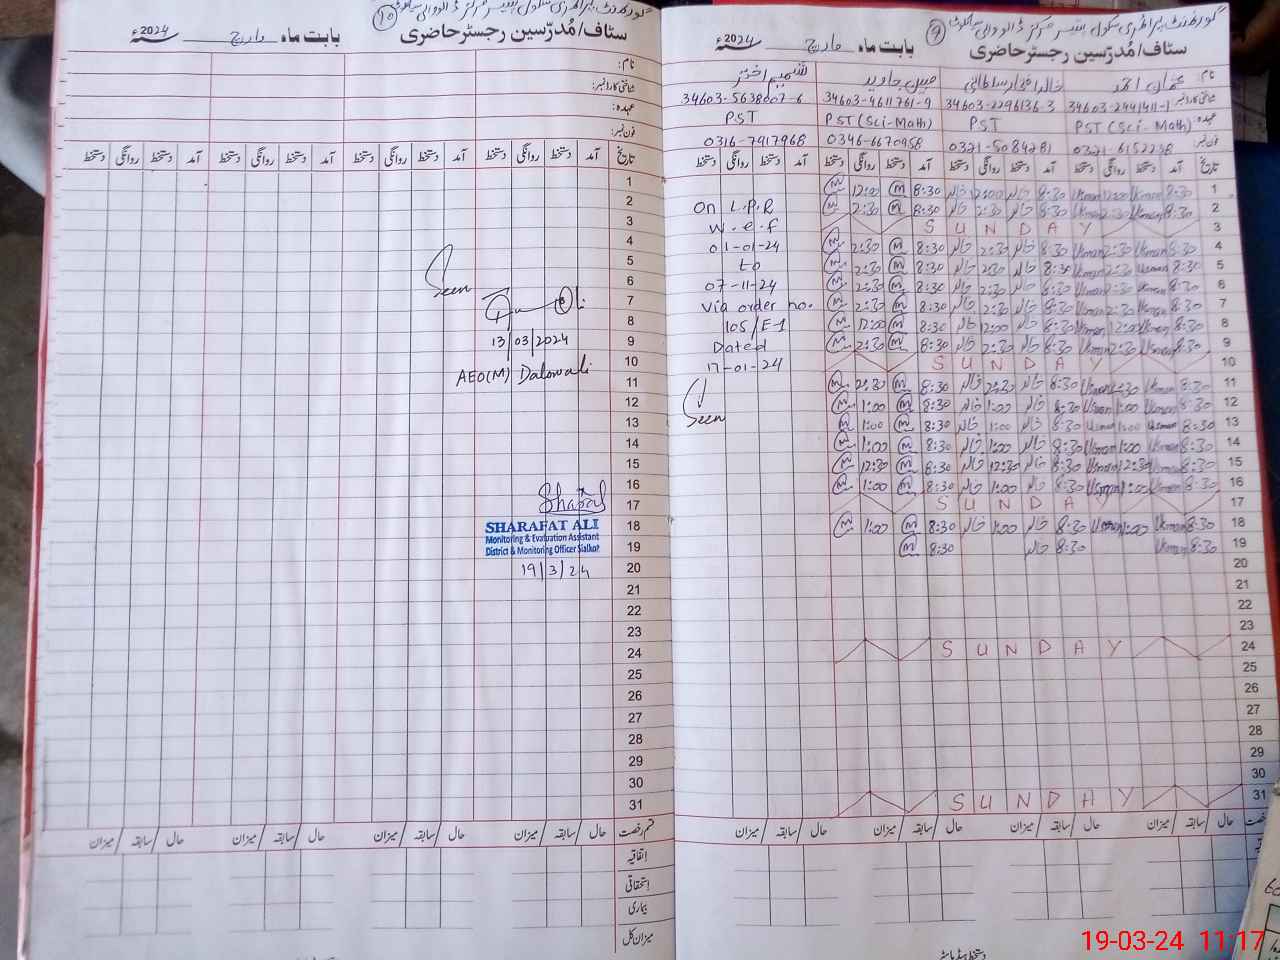 گورنمنٹ پرائمری سکول
سٹاف/مُدرّسین رجسٹر حاضری بابت ماہ مارچ 2024ء
نام:
شناختی کارڈ نمبر:
عہدہ:
فون نمبر:
تاریخ آمد دستخط روانگی دستخط آمد دستخط روانگی دستخط آمد دستخط روانگی دستخط آمد دستخط روانگی دستخط
1
2
3
4
5
6
7
8
9
10
11
12
13
14
15
16
17
18
19
20
21
22
23
24
25
26
27
28
29
30
31
Seen
13/03/2024
AEO(M) Dalowali
SHARAFAT ALI
Monitoring & Evaluation Assistant
District & Monitoring Officer Sialkot
19/3/24
قسم رخصت حال/سابقہ/میزان حال/سابقہ/میزان حال/سابقہ/میزان حال/سابقہ/میزان
اتفاقیہ
استحقاقی
بیماری
میزان کل
گورنمنٹ پرائمری سکول
سٹاف/مُدرّسین رجسٹر حاضری بابت ماہ مارچ 2024ء
نام: شمیم اختر
شناختی کارڈ نمبر 34603-2441411-1 34603-2296136-3 34603-4611761-9 34603-5638007-6
عہدہ: PST (Sci-Math) PST PST (Sci-Math) PST
فون نمبر: 0321-6152238 0321-5084281 0346-6670958 0316-7917968
تاریخ آمد دستخط روانگی دستخط آمد دستخط روانگی دستخط آمد دستخط روانگی دستخط آمد دستخط روانگی دستخط
1 8:30 Usman 12:00 Usman 8:30 خالد 12:00 خالد 8:30 m 12:00 m
2 8:30 Usman 2:30 Usman 8:30 خالد 2:30 خالد 8:30 m 2:30 m On L.P.R
3 SUNDAY w.e.f
4 8:30 Usman 2:30 Usman 8:30 خالد 2:30 خالد 8:30 m 2:30 m 01-01-24
5 8:30 Usman 2:30 Usman 8:30 خالد 2:30 خالد 8:30 m 2:30 m to
6 8:30 Usman 2:30 Usman 8:30 خالد 2:30 خالد 8:30 m 2:30 m 07-11-24
7 8:30 Usman 2:30 Usman 8:30 خالد 2:30 خالد 8:30 m 2:30 m Via order no.
8 8:30 Usman 12:00 Usman 8:30 خالد 12:00 خالد 8:30 m 12:00 m 105/E-1
9 8:30 Usman 2:30 Usman 8:30 خالد 2:30 خالد 8:30 m 2:30 m Dated
10 SUNDAY 17-01-24
11 8:30 Usman 2:30 Usman 8:30 خالد 2:30 خالد 8:30 m 2:30 m
12 8:30 Usman 1:00 Usman 8:30 خالد 1:00 خالد 8:30 m 1:00 m
13 8:30 Usman 1:00 Usman 8:30 خالد 1:00 خالد 8:30 m 1:00 m Seen
14 8:30 Usman 1:00 Usman 8:30 خالد 1:00 خالد 8:30 m 1:00 m
15 8:30 Usman 12:30 Usman 8:30 خالد 12:30 خالد 8:30 m 12:30 m
16 8:30 Usman 1:00 Usman 8:30 خالد 1:00 خالد 8:30 m 1:00 m
17 SUNDAY
18 8:30 Usman 1:00 Usman 8:30 خالد 1:00 خالد 8:30 m 1:00 m
19 8:30 Usman 8:30 خالد 8:30 m
20
21
22
23
24 SUNDAY
25
26
27
28
29
30
31 SUNDAY
حال/سابقہ/میزان حال/سابقہ/میزان حال/سابقہ/میزان حال/سابقہ/میزان
دستخط ہیڈ ماسٹر
19-03-24 11:17